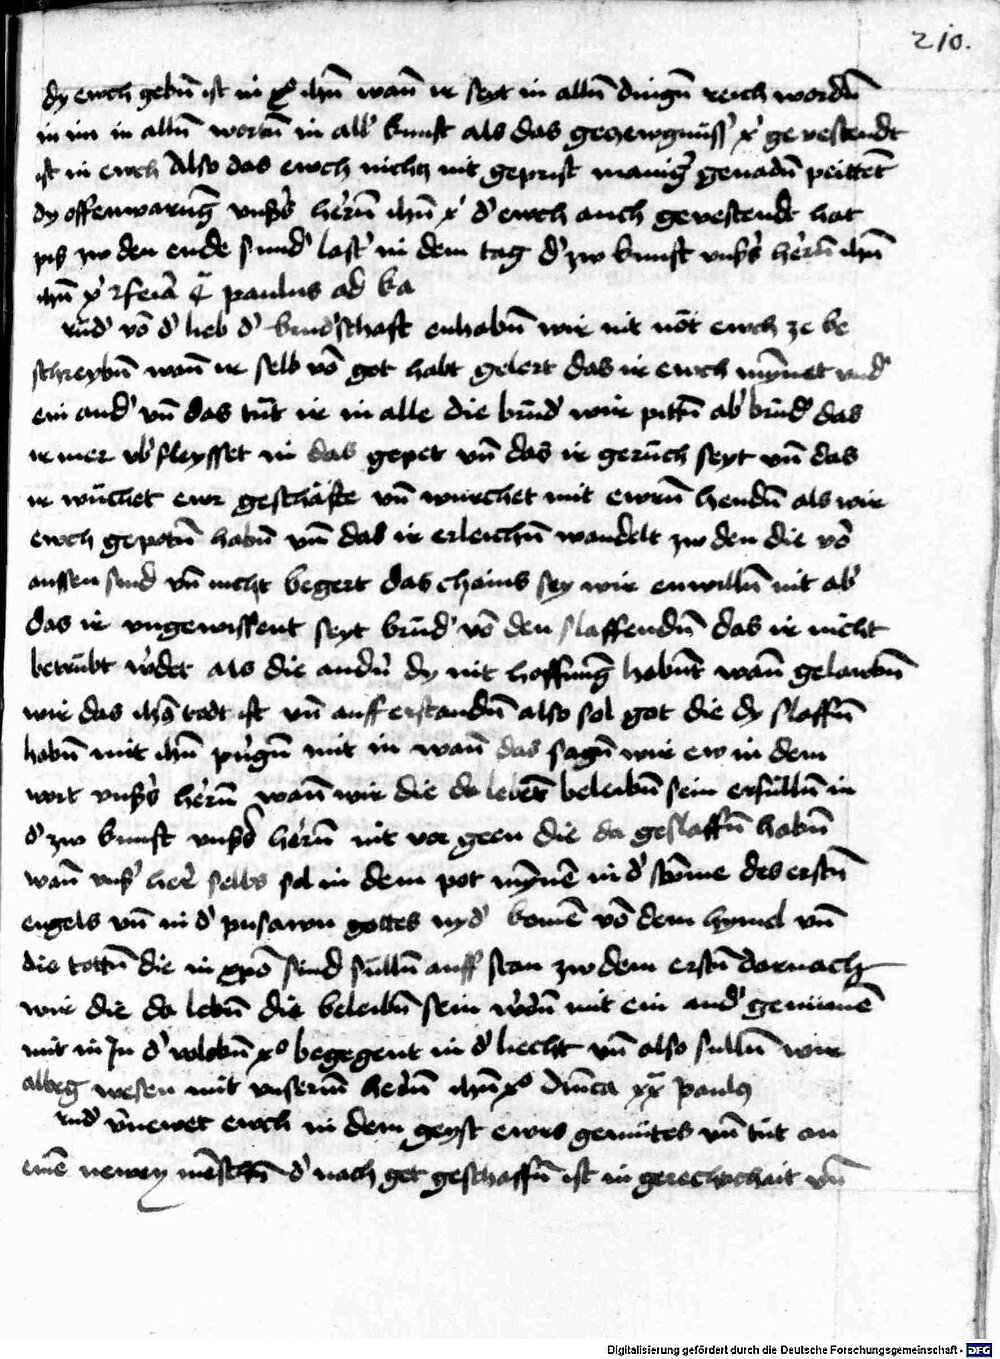 210.
dy ewch gebn̄ ist in xo ihū wan̄ ir seyt in alln̄ dingn̄ reich wordn̄
in im in alln̄ wortn̄ in all' kunst als das geczewgnüss' x' gevestendt
ist in ewch Also das ewch nichcz nit geprist manig' genadn̄ peittet
dy offenwarūg vnss's her'n̄ ihū x' d' ewch auch gevestendt hat
pis zw den ende sund' last' in dem tag d' zw kunft vnss's her'n̄ ihū
ihū x' paulus ad
rüd' vō d' lieb d' brud'schaft enhabn̄ wir nit nöt ewch ze be
schreybn̄ wan̄ ir selb vō got habt gelert das ir ewch mȳnet vnd'
ein and' vn̄ das tüt ir in alle die brüd' wir pittn̄ ab' brüd' das
ir mer vb'fleysset in das gepet vn̄ das ir gerüch seyt vn̄ das
ir würchet ewr geschäfte vn̄ würchet mit ewrn̄ hendn̄ als wir
ewch gepotn̄ habn̄ vn̄ das ir erleichn̄ wandelt zw den die vō
aussen sind vn̄ nicht begert das chains sey wir enwilln̄ nit ab'
das ir vngewissent seyt brüd' vō den slaffendn̄ das ir nicht
betrübt w'det als die and'n̄ dy nit hoffnūg habn̄t wan̄ gelawbn̄
wir das ihs todt ist vn̄ auff erstandn̄ also sol got die dy slaffn̄
habn̄ mit ihū pringn̄ mit im wan̄ das sagn̄ wir ew in dem
wort vnss's her'n̄ wan̄ wir die do lebētt beleibn̄ sein erfülln̄ in
d' zw kunft vnss's her'n̄ nit vor geen die da geslaffn̄ habn̄
wan̄ vnss' her' selbs sol in dem pot mȳnē in d' stȳme des erstn̄
engels vn̄ in d' pusawn gottes nyd' komē vō dem hymel vn̄
die tottn̄ die in xpō sind sülln̄ auff stan zw dem erstn̄ darnach
wir die do lebn̄ die beleibn̄ sein w'dn̄ mit ein and' genümē
mit in Jn d' wolckn̄ xo begegent in d' liecht vn̄ also sulln̄ wir
albeg wesen mit vnserm̄ her'n̄ ihū xo Dn̄ica xx paulus
rüd' v'newet ewch in dem geyst ewrs gemütes vn̄ tüt an
einē newen mēschn̄ d' nach got geschaffn̄ ist in gerechtchait vn̄
Digitalisierung gefördert durch die Deutsche Forschungsgemeinschaft - DFG